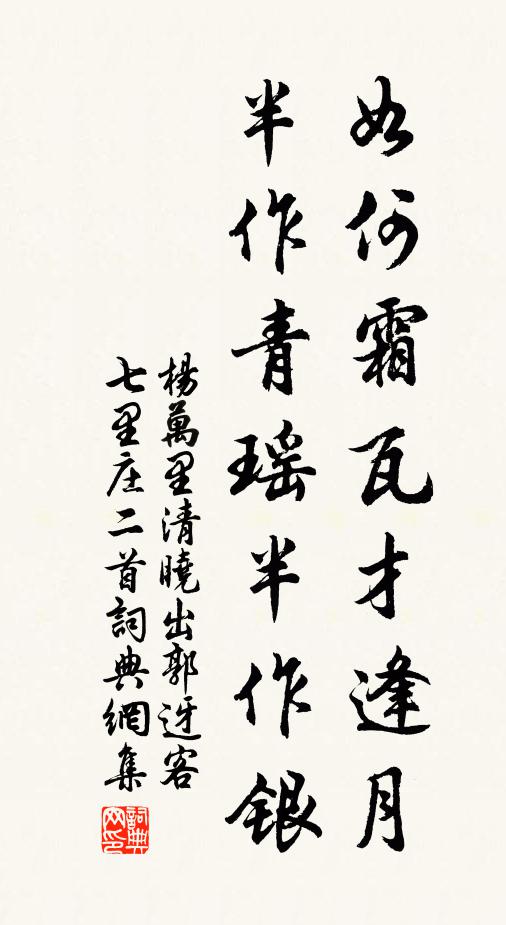 如何霜瓦才逢月
半作青瑶半作銀
楊萬里清曉出郭迓客
七里庄二首詞典網集
詞典
网印